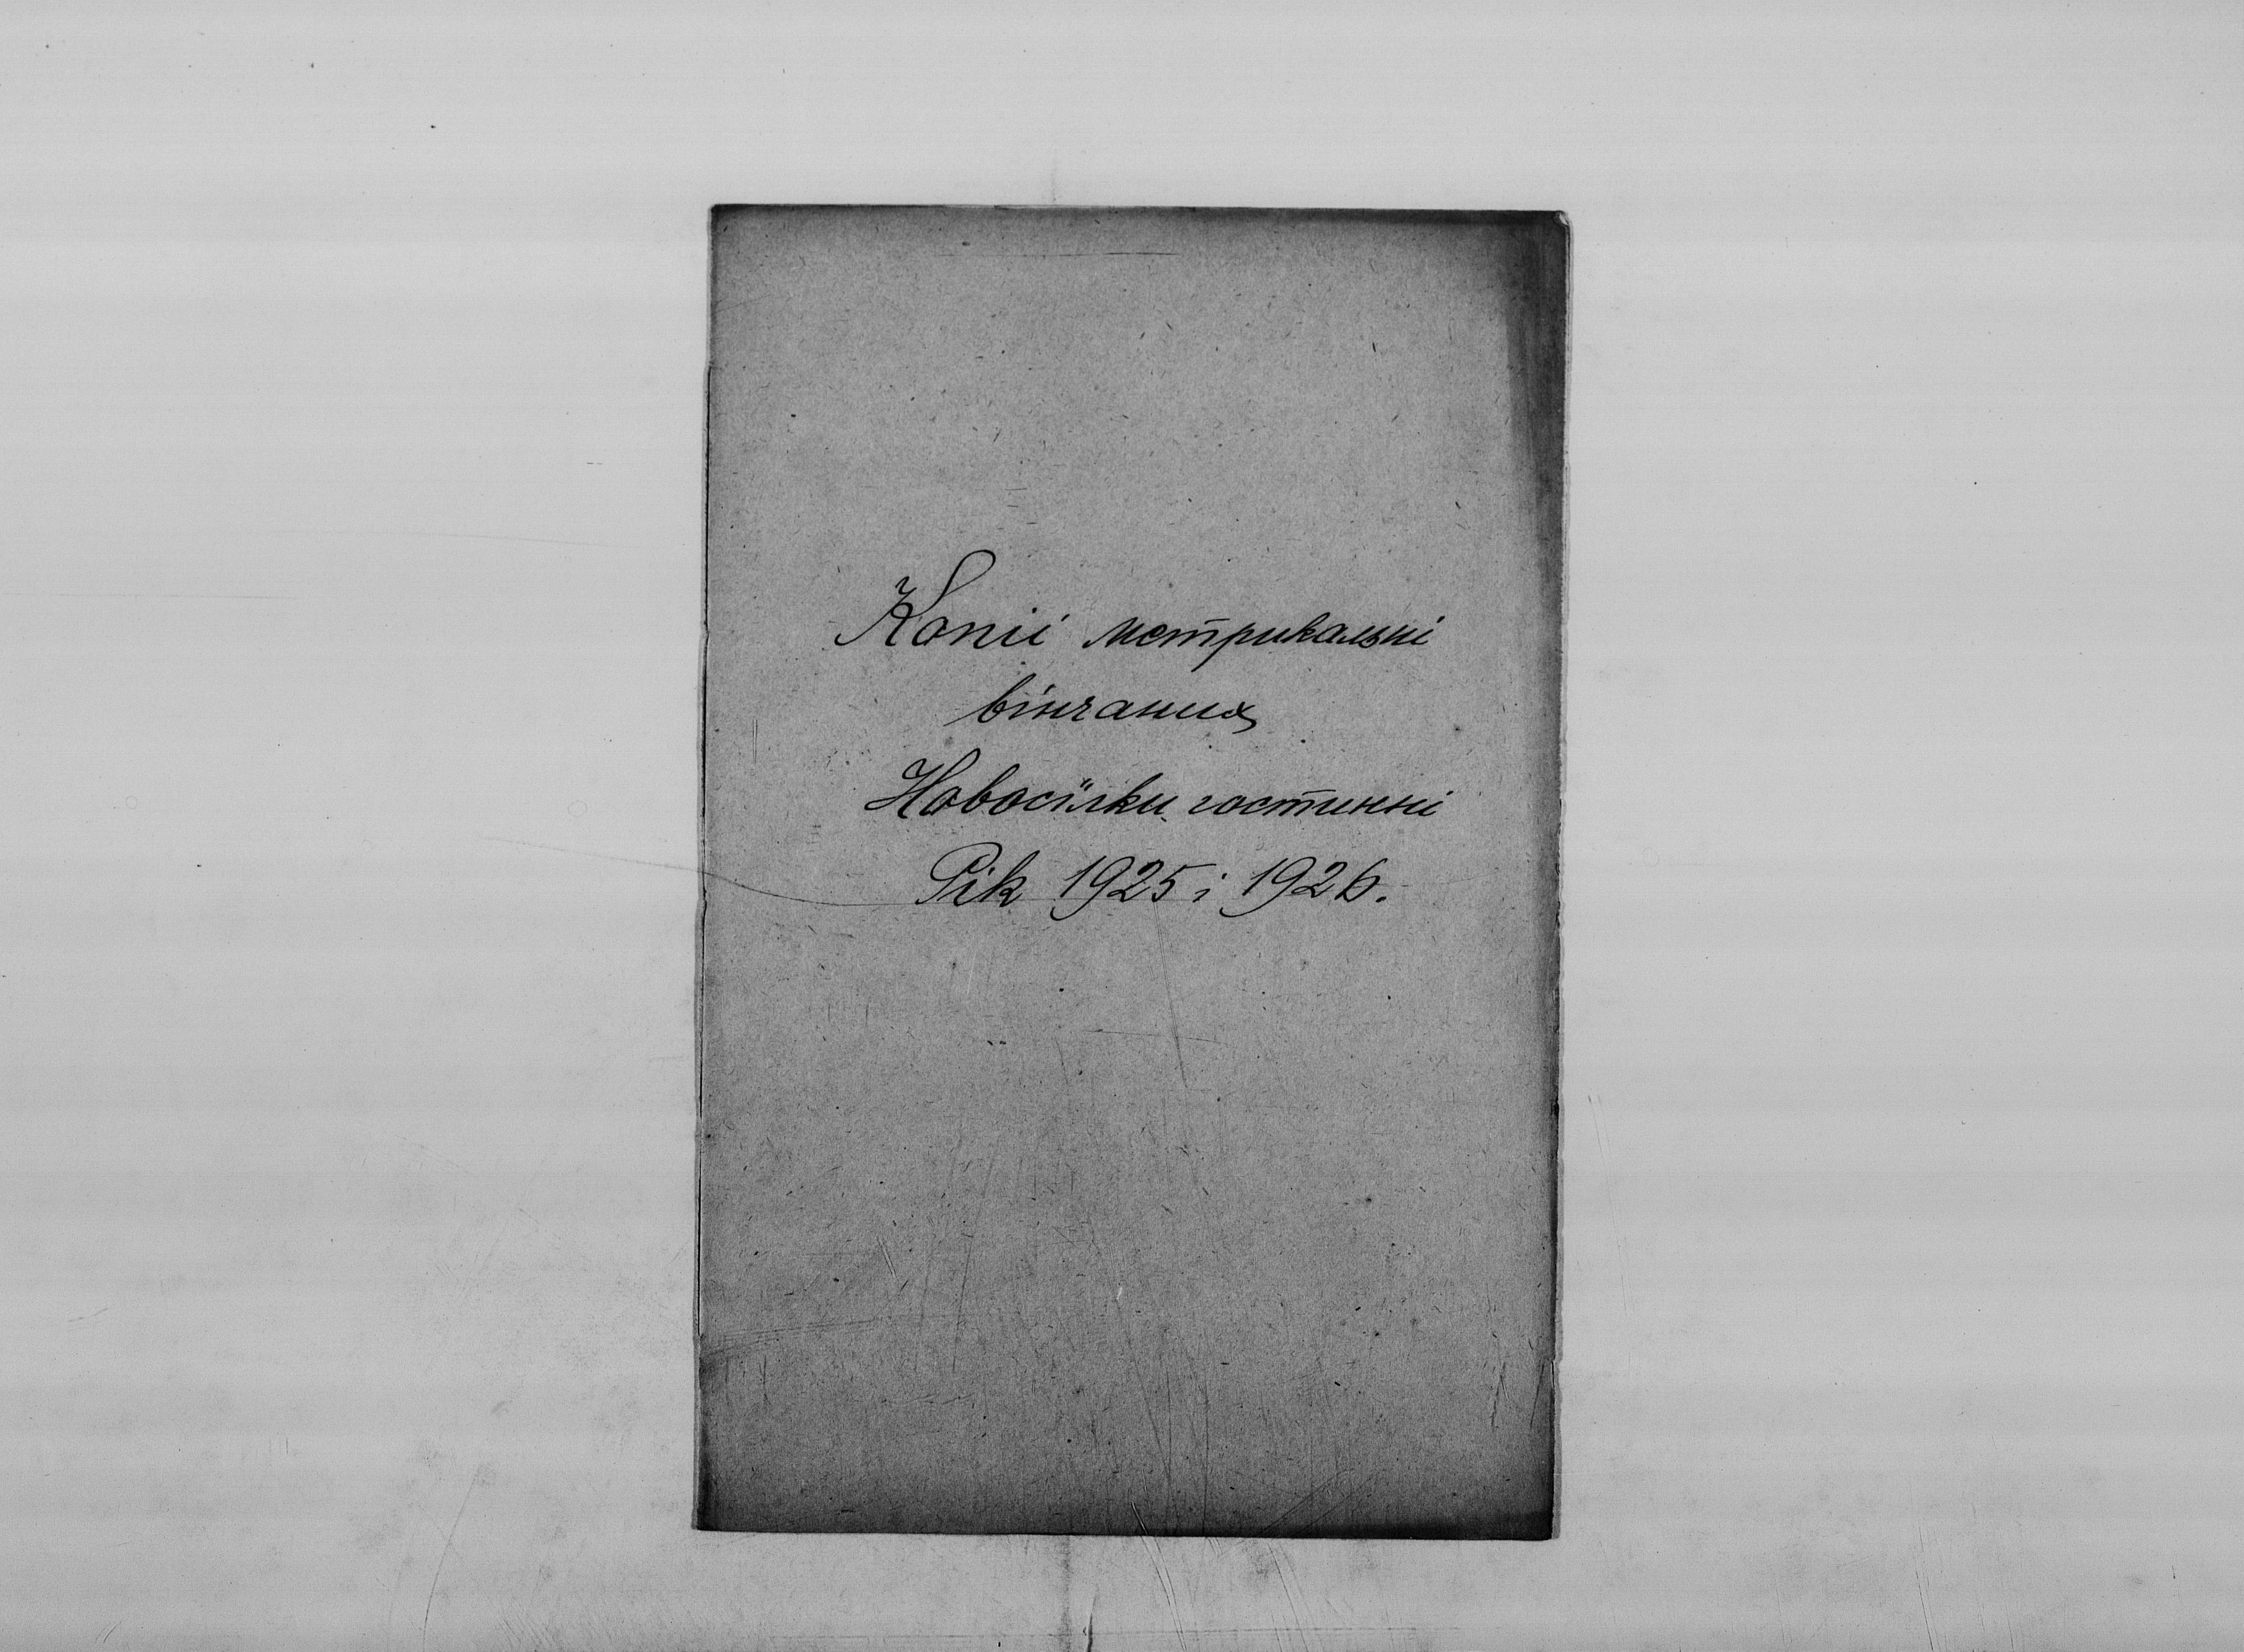 Копії метрикальні
вінчаних
Новосїлки гостинні
Рік 1925 і 1926.